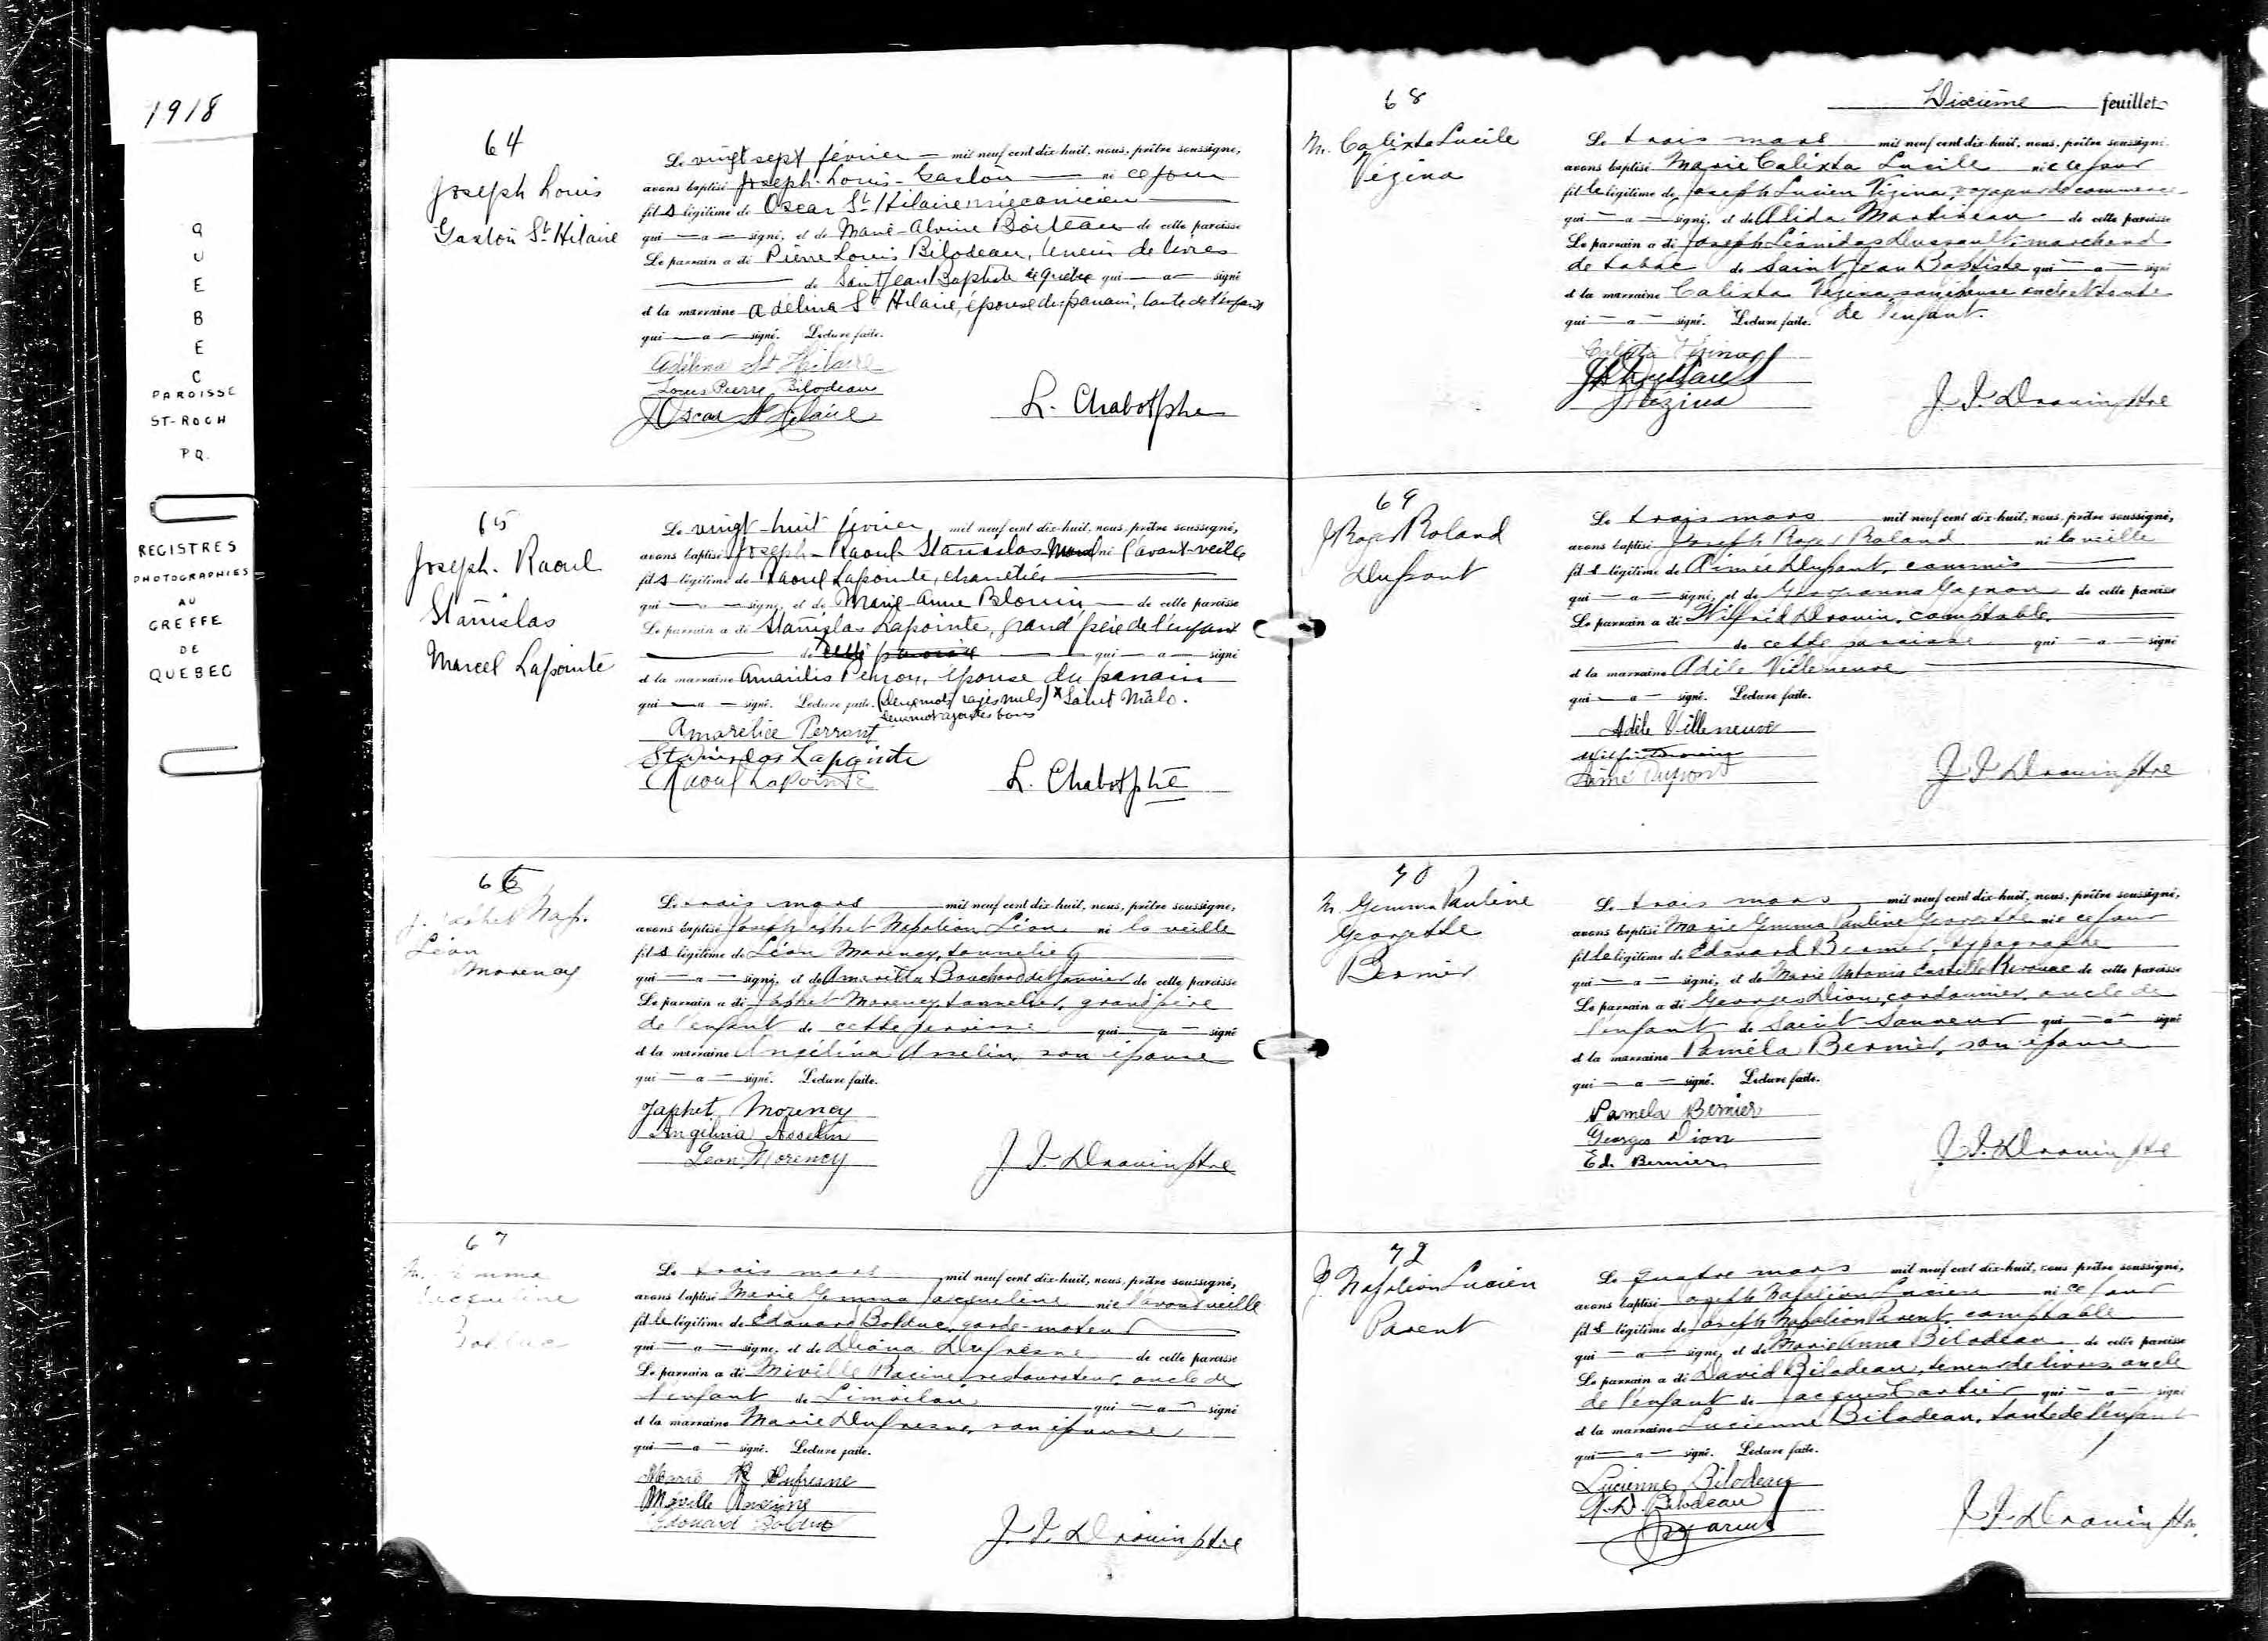 1918
QUEBEC
PAROISSE
ST-ROCH
PQ.
REGISTRES
PHOTOGRAPHIES
AU
GREFFE
DE
QUEBEC
64
Joseph Louis
Gaston St Hilaire
Le vingt sept février mil neuf cent dix-huit, nous, prêtre soussigné,
avons baptisé Joseph-Louis-Gaston né ce jour
fils légitime de Oscar St Hilaire mécanicien
qui a signé, et de Marie-Alvine Boiteau de cette paroisse
Le parrain a été Pierre Louis Bilodeau, teneur de livres
de Saint Jean Baptiste de Québec qui a signé
et la marraine Adélina St Hilaire, épouse du parrain, tante de l'enfant
qui a signé. Lecture faite.
Adélina St Hilaire
Louis Pierre Bilodeau
J Oscar St Hilaire
L. Chabot ptre
65
Joseph. Raoul
Stanislas
Marcel Lapointe
Le vingt-huit février mil neuf cent dix-huit, nous, prêtre soussigné,
avons baptisé Joseph-Raoul-Stanislas Marcel né l'avant-veille
fils légitime de Raoul Lapointe, charretier
qui a signé, et de Marie-Anne Blouin de cette paroisse
Le parrain a été Stanislas Lapointe, grand père de l'enfant
de cette paroisse qui a signé
et la marraine Amarilis Perron, épouse du parrain
qui a signé. Lecture faite. (deux mots rayés nuls) x Saint Malo.
deux mots ajoutés bons
Stanislas Lapointe
Raoul Lapointe
L. Chabot ptre
66
J. Japhet Nap.
Léon
Morency
Le trois mars mil neuf cent dix-huit, nous, prêtre soussigné,
avons baptisé Joseph Japhet Napoléon Léon né la veille
fils légitime de Léon Morency, tonnelier
qui a signé, et de Amarilla Bouchard de cette paroisse
Le parrain a été Japhet Morency, tonnelier, grand père
de l'enfant de cette paroisse qui a signé
et la marraine Angélina Asselin, son épouse
qui a signé. Lecture faite.
Japhet Morency
Angélina Asselin
Léon Morency
J. I. Drouin ptre
67
M. Gemma
Jacqueline
Bolduc
Le trois mars mil neuf cent dix-huit, nous, prêtre soussigné,
avons baptisé Marie Gemma Jacqueline née l'avant veille
fille légitime de Edouard Bolduc, garde-moteur
qui a signé, et de Diana Dufresne de cette paroisse
Le parrain a été Miville Racine restaurateur, oncle de
l'enfant de Limoilou qui a signé
et la marraine Marie Dufresne, son épouse
qui a signé. Lecture faite.
Marie R Dufresne
Miville Racine
Edouard Bolduc
J. I. Drouin ptre
Dixième feuillet
68
M. Calixta Lucile
Vézina
Le trois mars mil neuf cent dix-huit, nous, prêtre soussigné
avons baptisé Marie Calixta Lucille née ce jour
fille légitime de Joseph Lucien Vézina, voyageur de commerce
qui a signé, et de Alida Martineau de cette paroisse
Le parrain a été Joseph Léonidas Dussault, marchand
de tabac de Saint Jean Baptiste qui a signé
et la marraine Calixta Vézina, son épouse oncle et tante
qui a signé. Lecture faite. de l'enfant.
Calixta Vézina
J. I. Drouin ptre
69
J Roger Roland
Dupont
Le trois mars mil neuf cent dix-huit, nous, prêtre soussigné,
avons baptisé Joseph Roger Roland né la veille
fils légitime de Aimé Dupont, commis
qui a signé, et de Georgianna Gagnon de cette paroisse
Le parrain a été Wilfrid Drouin, comptable
de cette paroisse qui a signé
et la marraine Adèle Villeneuve
qui a signé. Lecture faite.
Adèle Villeneuve
Wilfrid Drouin
Aimé Dupont
J. I. Drouin ptre
70
M. Gemma Pauline
Georgette
Bernier
Le trois mars mil neuf cent dix-huit, nous, prêtre soussigné,
avons baptisé Marie Gemma Pauline Georgette née ce jour
fille légitime de Edouard Bernier, typographe
qui a signé, et de Marie Antonia de cette paroisse
Le parrain a été Georges Dion, cordonnier, oncle de
l'enfant de Saint Sauveur qui a signé
et la marraine Paméla Bernier, son épouse
qui a signé. Lecture faite.
Pamela Bernier
Georges Dion
Ed. Bernier
J. I. Drouin ptre
72
J. Napoléon Lucien
Parent
Le quatre mars mil neuf cent dix-huit, nous prêtre soussigné,
avons baptisé Joseph Napoléon Lucien né ce jour
fils légitime de Joseph Napoléon Parent, comptable
qui a signé, et de Marie Anna Bilodeau de cette paroisse
Le parrain a été David Bilodeau, teneur de livres, oncle
de l'enfant de Jacques Cartier qui a signé
et la marraine Lucienne Bilodeau, tante de l'enfant
qui a signé. Lecture faite.
Lucienne Bilodeau
Bilodeau
J. I. Drouin ptre